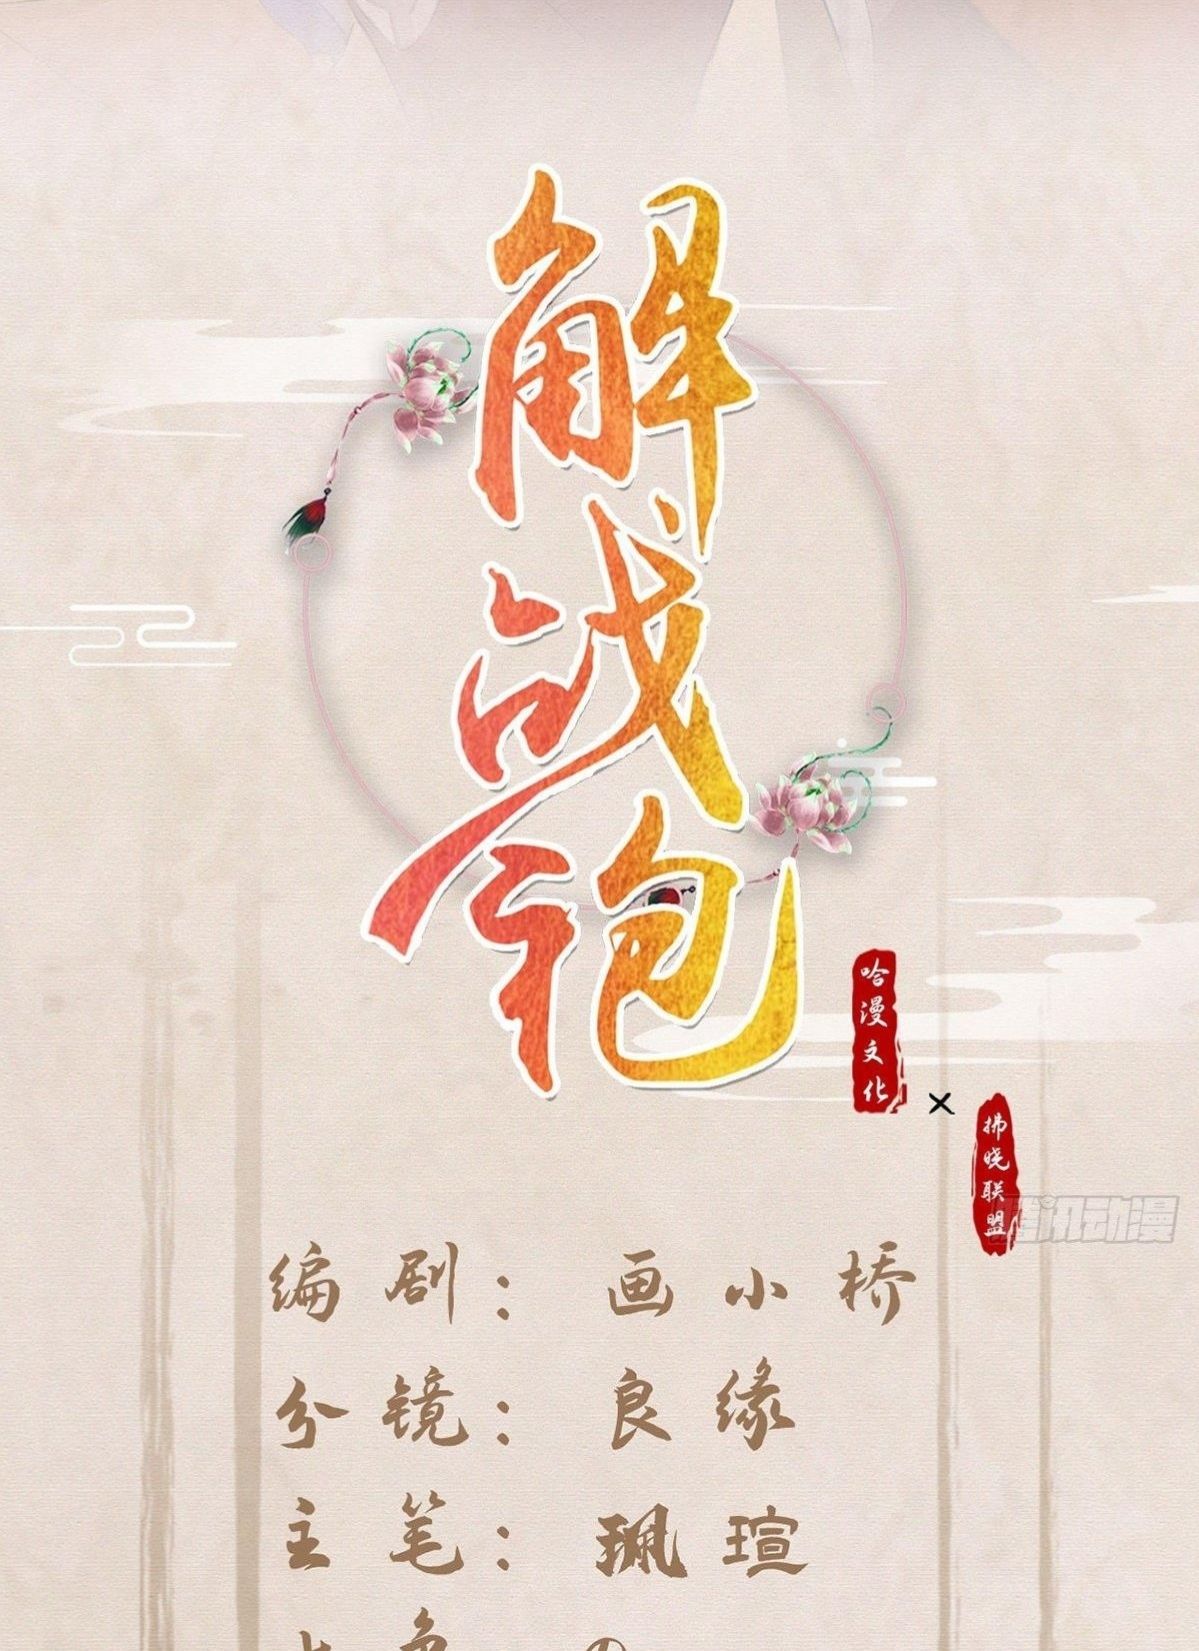 解战袍
哈漫文化
×
拂晓联盟
腾讯动漫
编剧：画小桥
分镜：良缘
主笔：珮瑄